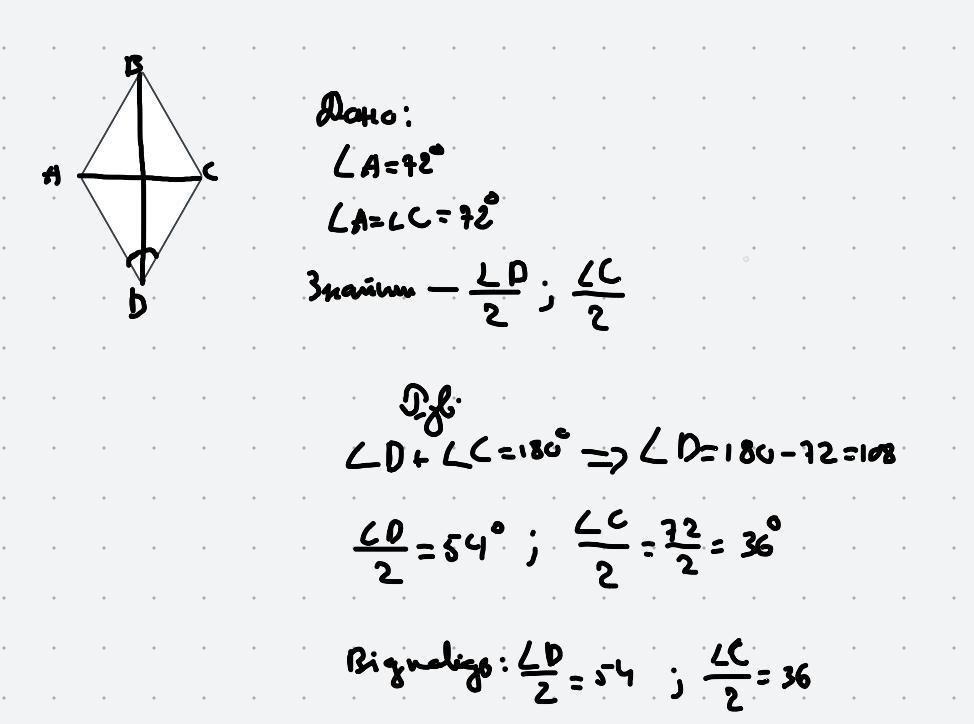 B
A
C
D
Дано:
∠A=72°
∠A=∠C=72°
Знайти — ∠D/2 ; ∠C/2
∠D+∠C=180° => ∠D=180-72=108
∠D/2 = 54° ; ∠C/2 = 72/2 = 36°
Відповідь: ∠D/2 = 54 ; ∠C/2 = 36